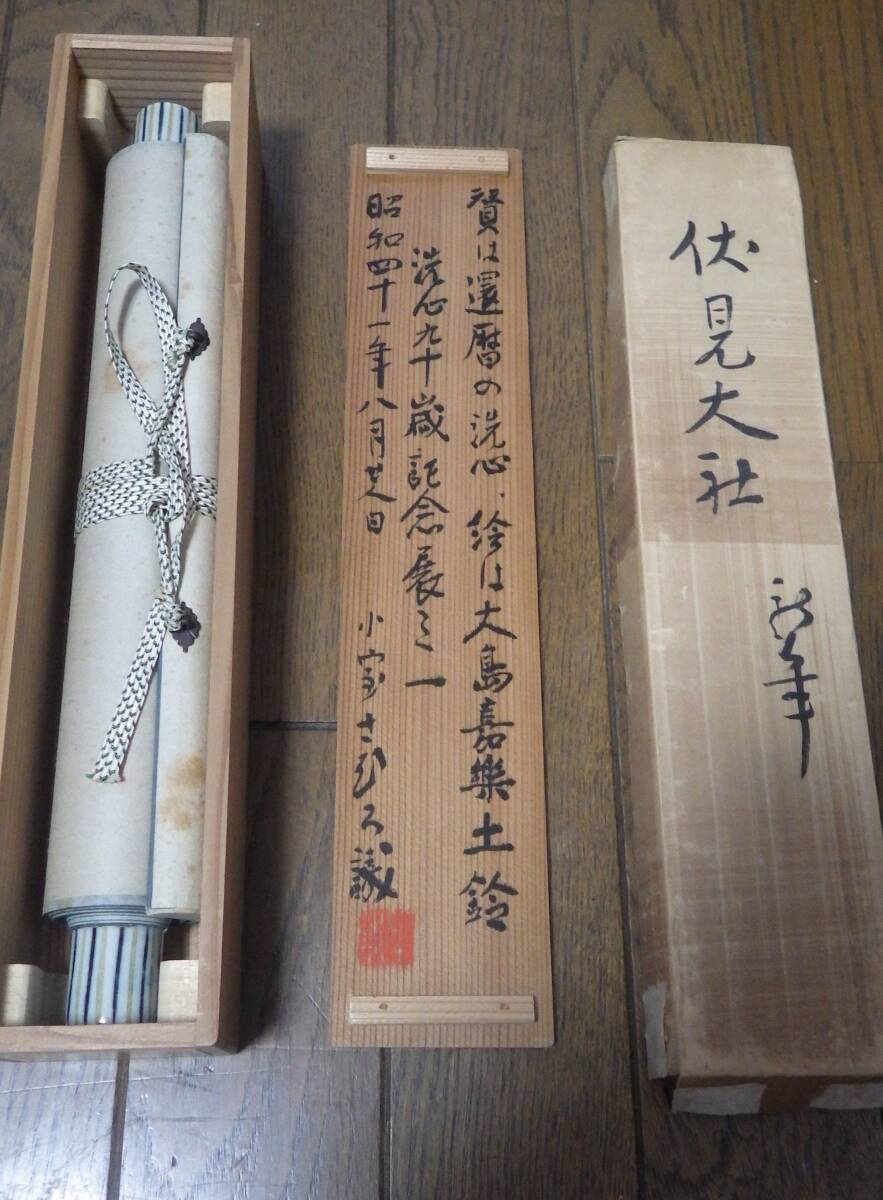 伏見大社
新年
賛は還暦の洗心、絵は大島嘉樂土鈴
洗心九十歳記念展之一
昭和四十一年八月廿八日
小室さむろ識